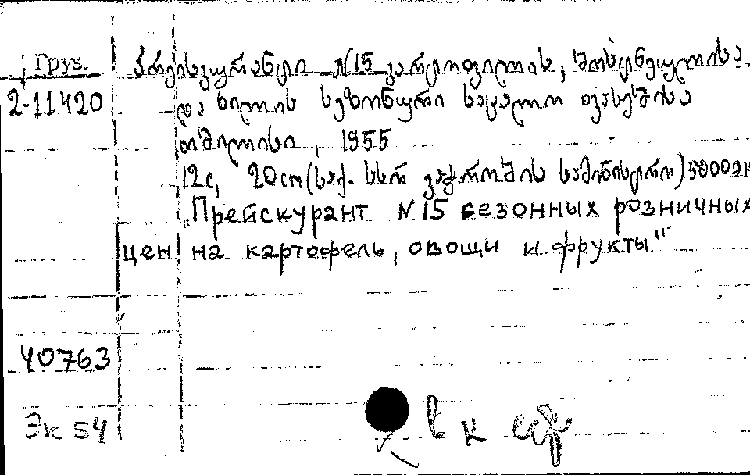 Груз. პრეისკურანტი N15 კარტოფილის, ბოსტნეულისა
2-11420 და ხილის სეზონური საცალო ფასებისა
თბილისი, 1955
12с, 20см (საქ. სსრ ვაჭრობის სამინისტრო)
"Прейскурант N15 сезонных розничных
цен на картофель, овощи и фрукты"
40763
Эк 54
в к